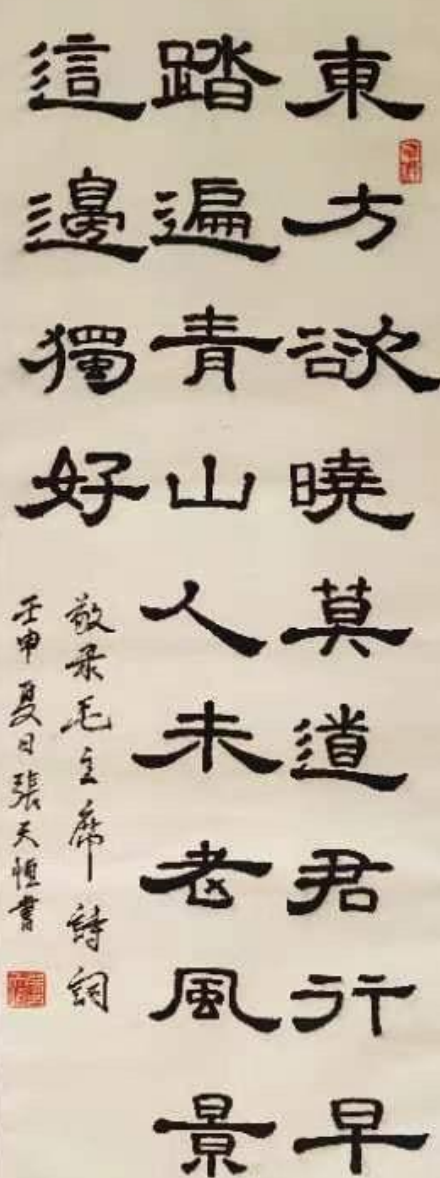 東方欲曉莫道君行早
踏遍青山人未老風景
這邊獨好
敬录毛主席詩詞
壬申夏日張天恒書